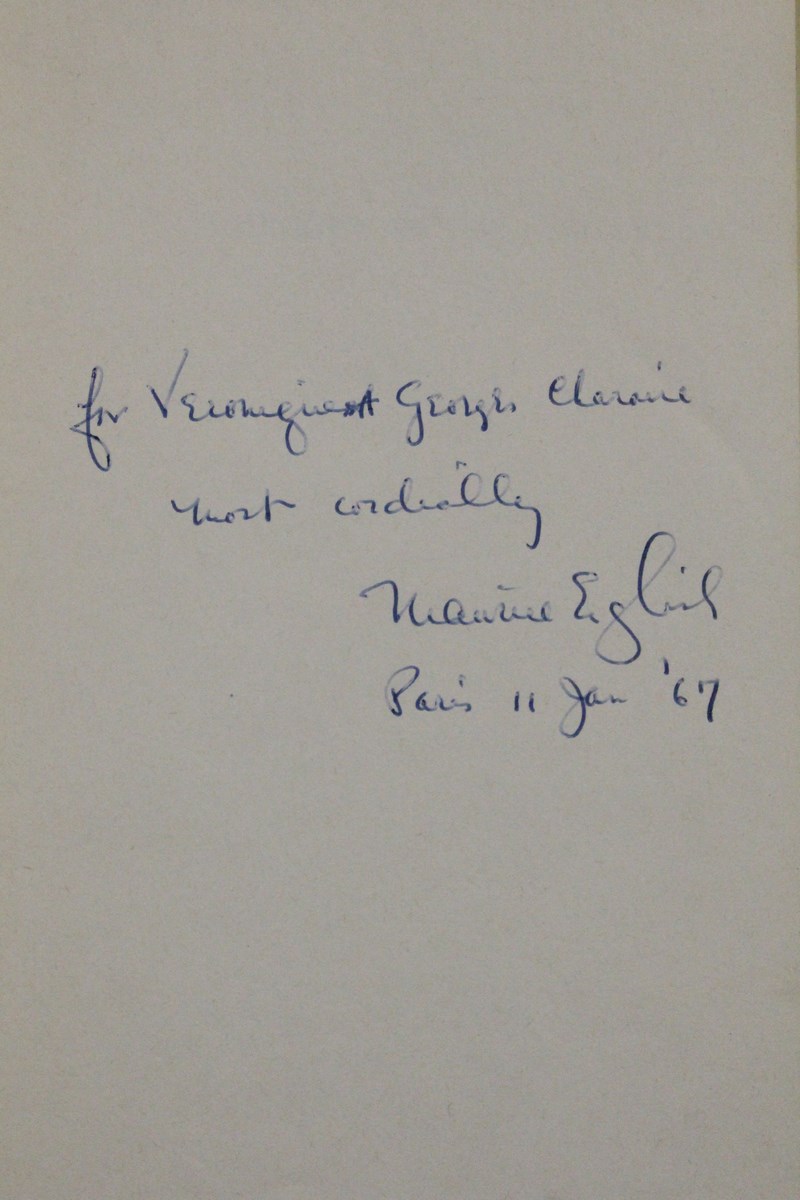 for Veronique et Georges Charaire
most cordially
Maurice English
Paris 11 Jan '67